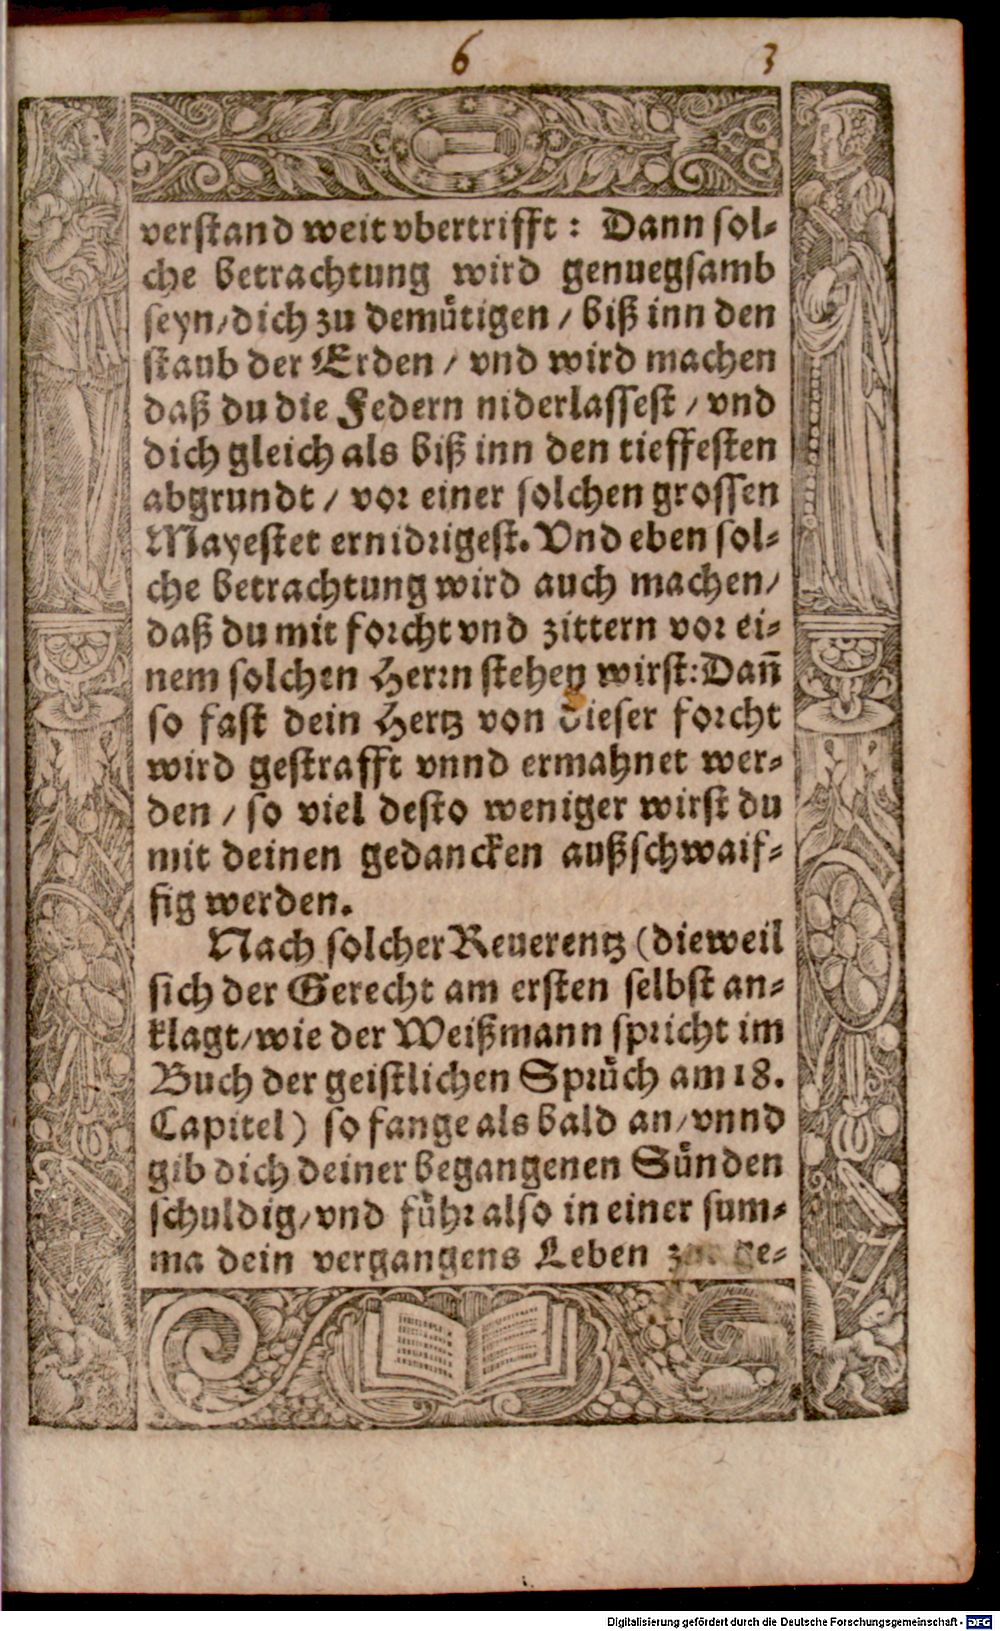 6 3
verstand weit vbertrifft: Dann sol-
che betrachtung wird genuegsamb
seyn/dich zu demuͤtigen/ biß inn den
staub der Erden/ vnd wird machen
daß du die Federn niderlassest/ vnd
dich gleich als biß inn den tieffesten
abgrundt/ vor einer solchen grossen
Mayestet ernidrigest. Vnd eben sol-
che betrachtung wird auch machen/
daß du mit forcht vnd zittern vor ei-
nem solchen Herrn stehen wirst: Dañ
so fast dein Hertz von dieser forcht
wird gestrafft vnnd ermahnet wer-
den/ so viel desto weniger wirst du
mit deinen gedancken außschwaif-
fig werden.
Nach solcher Reuerentz (dieweil
sich der Gerecht am ersten selbst an-
klagt/wie der Weißmann spricht im
Buch der geistlichen Spruͤch am 18.
Capitel) so fange als bald an/vnnd
gib dich deiner begangenen Suͤnden
schuldig/vnd fuͤhr also in einer sum-
ma dein vergangens Leben ge-
Digitalisierung gefördert durch die Deutsche Forschungsgemeinschaft - DFG